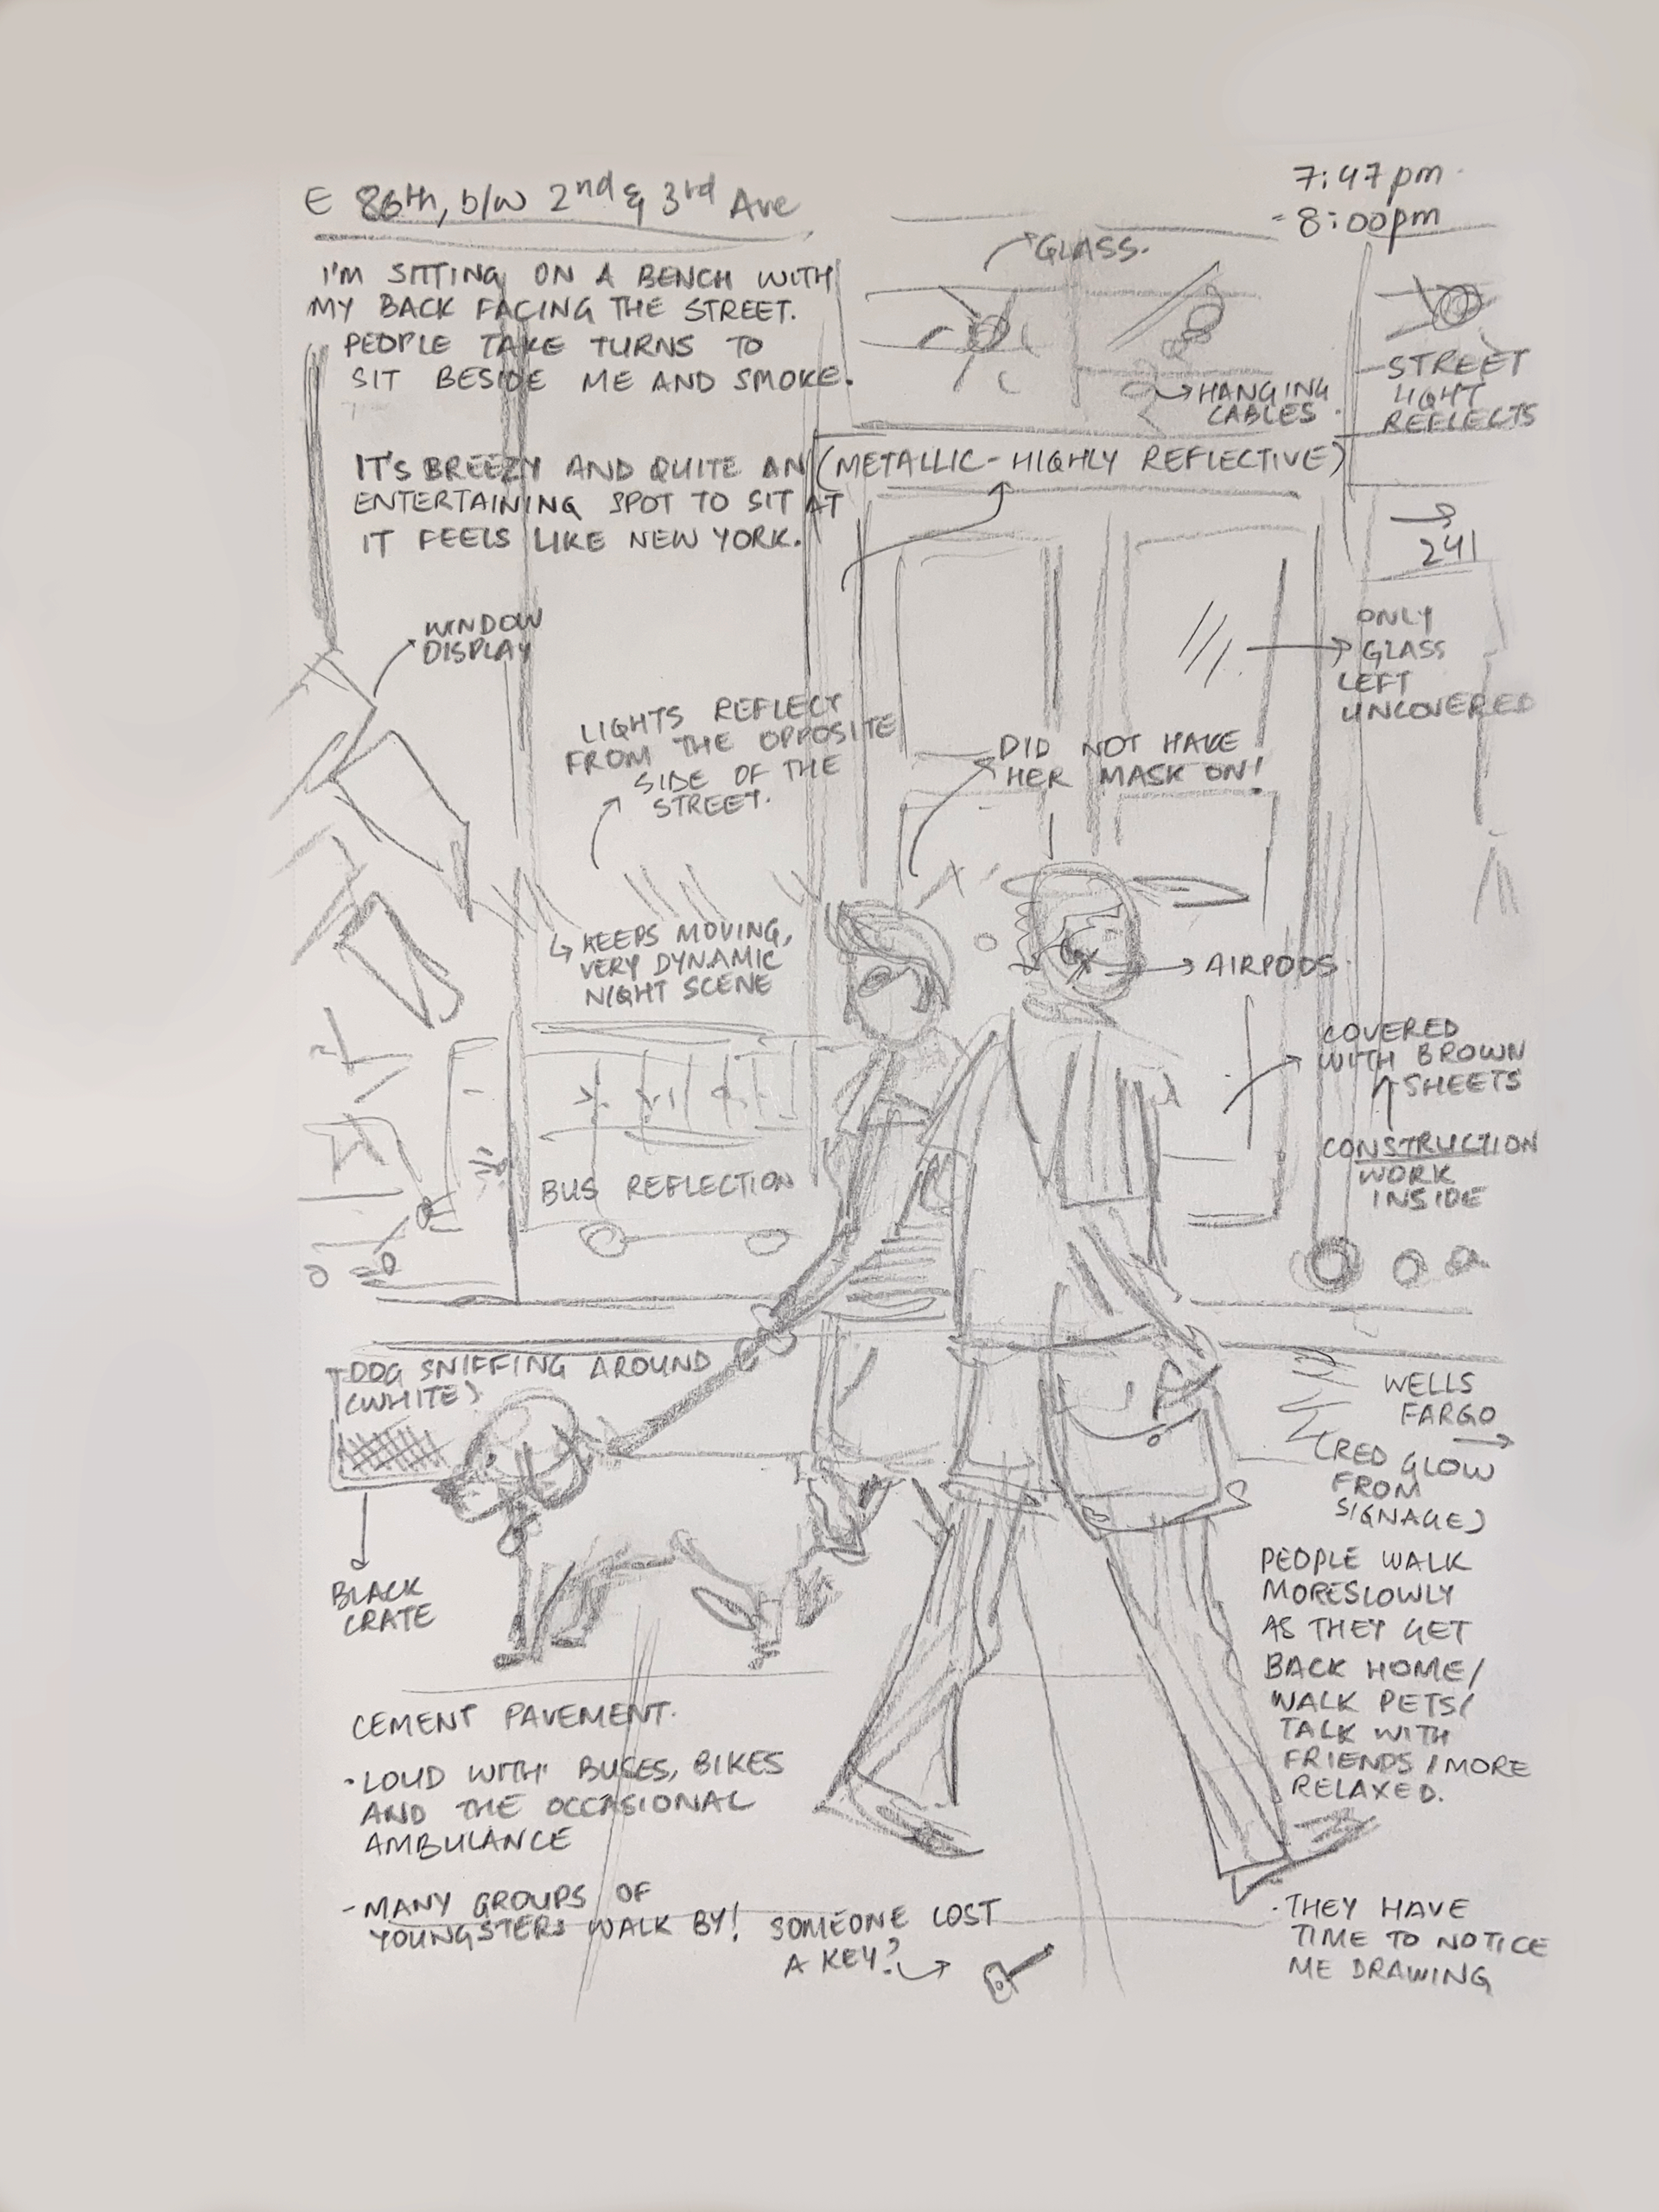 E 86th, b/w 2nd & 3rd Ave
7:47pm
- 8:00pm
I'M SITTING ON A BENCH WITH
MY BACK FACING THE STREET.
PEOPLE TAKE TURNS TO
SIT BESIDE ME AND SMOKE.
GLASS.
HANGING
CABLES
STREET
LIGHT
REFLECTS
IT'S BREEZY AND QUITE AN
ENTERTAINING SPOT TO SIT AT
IT FEELS LIKE NEW YORK.
(METALLIC-HIGHLY REFLECTIVE)
241
WINDOW
DISPLAY
ONLY
GLASS
LEFT
UNCOVERED
LIGHTS REFLECT
FROM THE OPPOSITE
SIDE OF THE
STREET.
DID NOT HAVE
HER MASK ON!
KEEPS MOVING,
VERY DYNAMIC
NIGHT SCENE
AIRPODS
COVERED
WITH BROWN
SHEETS
CONSTRUCTION
WORK
INSIDE
BUS REFLECTION
DOG SNIFFING AROUND
(WHITE)
WELLS
FARGO
(RED GLOW
FROM
SIGNAGE)
BLACK
CRATE
PEOPLE WALK
MORE SLOWLY
AS THEY GET
BACK HOME/
WALK PETS/
TALK WITH
FRIENDS/MORE
RELAXED.
CEMENT PAVEMENT.
- LOUD WITH BUSES, BIKES
AND THE OCCASIONAL
AMBULANCE
- MANY GROUPS OF
YOUNGSTERS WALK BY!
SOMEONE LOST
A KEY?
- THEY HAVE
TIME TO NOTICE
ME DRAWING